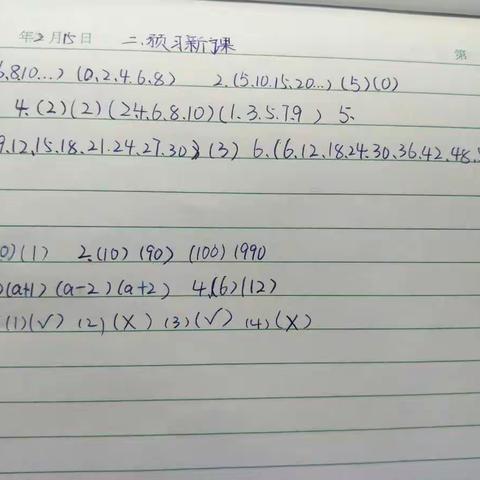 年2月15日 二.预习新课
第
6.8.10...) (0.2.4.6.8) 2.(5.10.15.20...)(5)(0)
4.(2)(2)(2.4.6.8.10)(1.3.5.7.9) 5.
9.12.15.18.21.24.27.30)(3) 6.(6.12.18.24.30.36.42.48.
0)(1) 2.(10)(90)(100)(990
)(a+1)(a-2)(a+2) 4.(6)(12)
(1)(√) (2)(X) (3)(√) (4)(X)